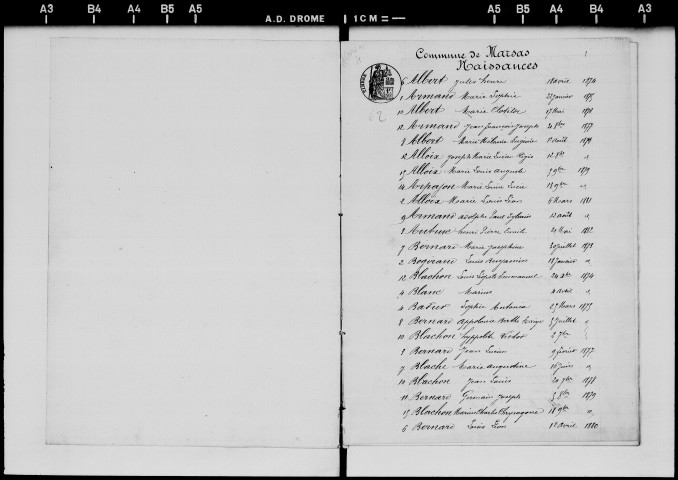 A3 B4 A4 B5 A5 A5 B5 A4 B4 A3
A.D. DROME 1CM=
Commune de Marsas
Naissances
6 Albert Jules henri 18 avril 1874
1 Armand Marie Sophie 22 Janvier 1875
13 Albert Marie Clotilde 17 Mai 1876
12 Armand Jean François Joseph 24 8bre 1877
8 Albert Marie Mélanie Eugénie 1er août 1878
12 Alloix Joseph Marie Lucien Régis 12 8bre "
17 Alloix Marie Louis Auguste 9bre 1879
14 Arpajon Marie Lucie 18 9bre "
2 Alloix Marie Louis Léon 6 Mars 1881
9 Armand adolphe Paul Sylvain 12 août "
3 henri Pierre Emile 21 Mai 1882
7 Bernard Marie Joséphine 30 juillet 1873
2 Louis Benjamin 18 Janvier "
12 Blachon Louis Emmanuel 24 Xbre 1874
4 Blanc Marius 4 avril "
4 Sophie 25 Mars 1875
8 Bernard Appolonie 5 Juillet "
10 Blachon hyppolite Victor 2 7bre
3 Bernard Jean Lucien 9 février 1877
7 Blache Marie augustine 16 Juin "
10 Blachon Jean Louis 20 7bre 1878
11 Bernard Germain Joseph 5 8bre 1879
17 Blachon Marius Charles 18 9bre "
6 Bernard Louis Léon 12 avril 1880
62